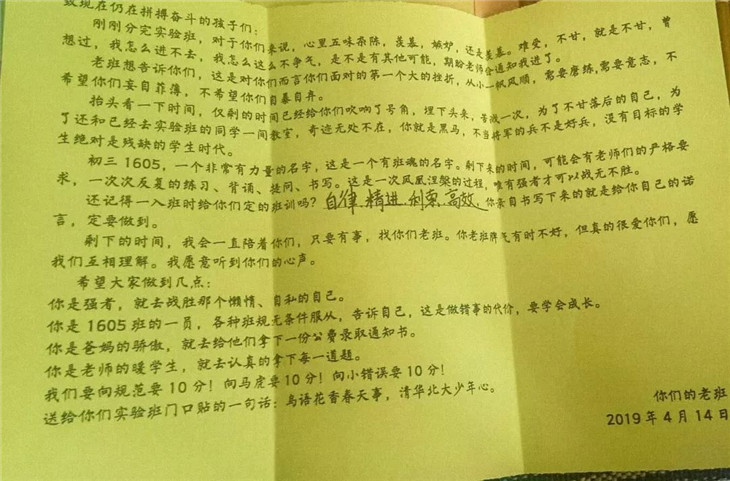 致现在仍在拼搏奋斗的孩子们:
刚刚分完实验班,对于你们来说,心里五味杂陈,羡慕,嫉妒,还是羡慕。难受,不甘,就是不甘,曾
想过,我怎么进不去,我怎么这么不争气,是不是有其他可能,期盼老师会通知我进了。
老班想告诉你们,这是对你们而言你们面对的第一个大的挫折,从小一帆风顺,需要磨练,需要意志,不
希望你们妄自菲薄,不希望你们自暴自弃。
抬头看一下时间,仅剩的时间已经给你们吹响了号角,埋下头来,苦战一次,为了不甘落后的自己,为
了还和已经去实验班的同学一间教室,奇迹无处不在,你就是黑马,不当将军的兵不是好兵,没有目标的学
生绝对是残缺的学生时代。
初三1605,一个非常有力量的名字,这是一个有班魂的名字。剩下来的时间,可能会有老师们的严格要
求,一次次反复的练习、背诵、提问、书写。这是一次凤凰涅槃的过程,唯有强者才可以战无不胜。
还记得一入班时给你们定的班训吗?自律 精进 利索 高效 你亲自书写下来的就是给你自己的诺
言,定要做到。
剩下的时间,我会一直陪着你们,只要有事,找你们老班。你老班脾气有时不好,但真的很爱你们,愿
我们互相理解。我愿意听到你们的心声。
希望大家做到几点:
你是强者,就去战胜那个懒惰、自私的自己。
你是1605班的一员,各种班规无条件服从,告诉自己,这是做错事的代价,要学会成长。
你是爸妈的骄傲,就去给他们拿下一份公费录取通知书。
你是老师的暖学生,就去认真的拿下每一道题。
我们要向规范要10分!向马虎要10分!向小错误要10分!
送给你们实验班门口贴的一句话:鸟语花香春天事,清华北大少年心。
你们的老班
2019年4月14日